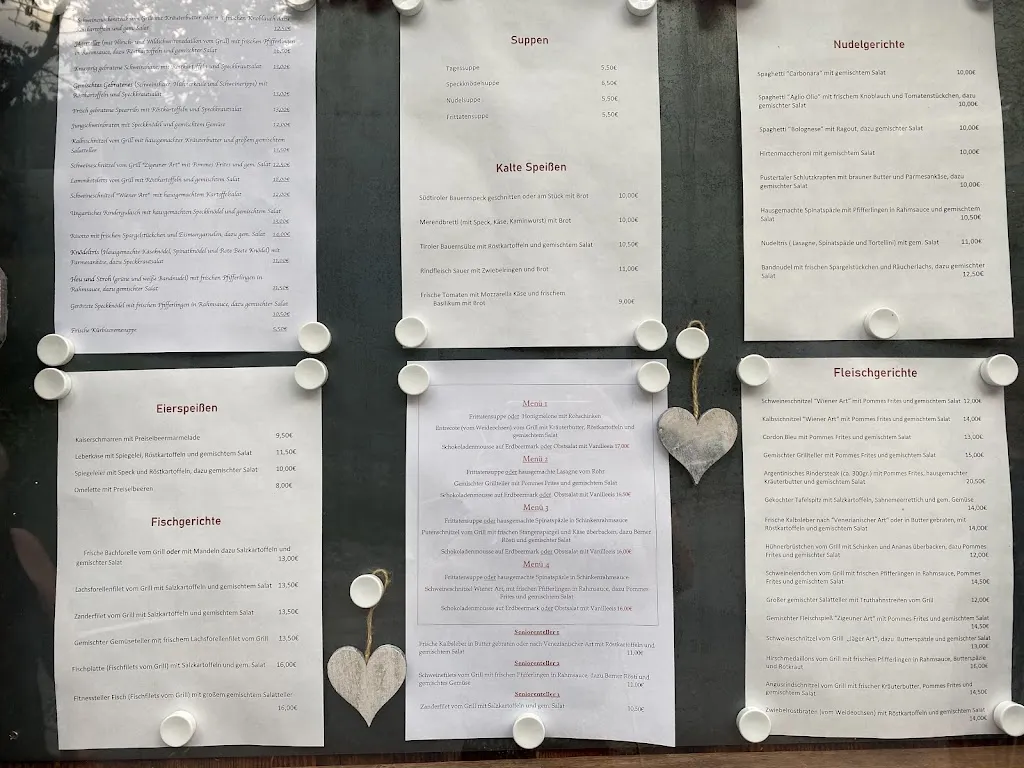 Schweinekotelett vom Grill mit Kräuterbutter oder mit frischen Knoblauch dazu
Röstkartoffeln und gem. Salat 12,50€
(aus Hirsch- und Wildschweinmedaillon vom Grill) mit frischen Pfifferlingen
in Rahmsauce, dazu Röstkartoffeln und gemischter Salat
Knusprig gebratene Schweinshaxe mit Röstkartoffeln und Speckkrautsalat
Gemischtes Gebratenes (Schweinshaxe, und Schweineripp) mit
Röstkartoffeln und Speckkrautsalat
Frisch gebratene Spareribs mit Röstkartoffeln und Speckkrautsalat
Jungschweinbraten mit Speckknödel und gemischtem Gemüse
Kalbsschnitzel vom Grill mit hausgemachter Kräuterbutter und großem gemischtem
Salatteller
Schweineschnitzel vom Grill "Zigeuner Art" mit Pommes Frites und gem. Salat
Lammkoteletts vom Grill mit Röstkartoffeln und gemischtem Salat
Schweineschnitzel "Wiener Art" mit hausgemachtem Kartoffelsalat
Ungarisches Rindergulasch mit hausgemachten Speckknödel und gemischtem Salat
Risotto mit frischen Spargelstückchen und Eismeergarnelen, dazu gem. Salat
Knödeltris (Hausgemachte Käseknödel, Spinatknödel und Rote Beete Knödel) mit
Parmesankäse, dazu Speckkrautsalat
Heu und Stroh (grüne und weiße Bandnudel) mit frischen Pfifferlingen in
Rahmsauce, dazu gemischter Salat
Geröstete Speckknödel mit frischen Pfifferlingen in Rahmsauce, dazu gemischter Salat
10,50€
Frische Kürbiscremesuppe 5,50€
Suppen
Tagessuppe 5,50€
Speckknödelsuppe 6,50€
Nudelsuppe 5,50€
Frittatensuppe 5,50€
Kalte Speißen
Südtiroler Bauernspeck geschnitten oder am Stück mit Brot 10,00€
Merendbrettl (mit Speck, Käse, Kaminwurst) mit Brot 10,00€
Tiroler Bauernsülze mit Röstkartoffeln und gemischtem Salat 10,50€
Rindfleisch Sauer mit Zwiebelringen und Brot 11,00€
Frische Tomaten mit Mozzarella Käse und frischem
Basilikum mit Brot 9,00€
Nudelgerichte
Spaghetti "Carbonara" mit gemischtem Salat 10,00€
Spaghetti "Aglio Olio" mit frischem Knoblauch und Tomatenstückchen, dazu
gemischter Salat 10,00€
Spaghetti "Bolognese" mit Ragout, dazu gemischter Salat 10,00€
Hirtenmaccheroni mit gemischtem Salat 10,00€
Pustertaler Schlutzkrapfen mit brauner Butter und Parmesankäse, dazu
gemischter Salat 10,00€
Hausgemachte Spinatspäzle mit Pfifferlingen in Rahmsauce und gemischtem
Salat 10,50€
Nudeltris ( Lasagne, Spinatspäzle und Tortellini) mit gem. Salat 11,00€
Bandnudel mit frischen Spargelstückchen und Räucherlachs, dazu gemischter
Salat 12,50€
Eierspeißen
Kaiserschmarren mit Preiselbeermarmelade 9,50€
Leberkäse mit Spiegelei, Röstkartoffeln und gemischtem Salat 11,50€
Spiegeleier mit Speck und Röstkartoffeln, dazu gemischter Salat 10,00€
Omelette mit Preiselbeeren 8,00€
Fischgerichte
Frische Bachforelle vom Grill oder mit Mandeln dazu Salzkartoffeln und
gemischter Salat 13,00€
Lachsforellenfilet vom Grill mit Salzkartoffeln und gemischtem Salat 13,50€
Zanderfilet vom Grill mit Salzkartoffeln und gemischtem Salat 13,50€
Gemischter Gemüseteller mit frischem Lachsforellenfilet vom Grill 13,50€
Fischplatte (Fischfilets vom Grill) mit Salzkartoffeln und gem. Salat 16,00€
Fitnessteller Fisch (Fischfilets vom Grill) mit großem gemischtem Salatteller
16,00€
Menü 1
Frittatensuppe oder Honigmelone mit Rohschinken
Entrecote (vom Weideochsen) vom Grill mit Kräuterbutter, Röstkartoffeln und
gemischtem Salat
Schokoladenmousse auf Erdbeermark oder Obstsalat mit Vanilleeis 17,00€
Menü 2
Frittatensuppe oder hausgemachte Lasagne vom Rohr
Gemischter Grillteller mit Pommes Frites und gemischtem Salat
Schokoladenmousse auf Erdbeermark oder Obstsalat mit Vanilleeis 16,50€
Menü 3
Frittatensuppe oder hausgemachte Spinatspäzle in Schinkenrahmsauce
Putenschnitzel vom Grill mit frischen Stangenspargel und Käse überbacken, dazu Berner
Rösti und gemischter Salat
Schokoladenmousse auf Erdbeermark oder Obstsalat mit Vanilleeis 16,00€
Menü 4
Frittatensuppe oder hausgemachte Spinatspäzle in Schinkenrahmsauce
Schweineschnitzel Wiener Art, mit frischen Pfifferlingen in Rahmsauce, dazu Pommes
Frites und gemischtem Salat
Schokoladenmousse auf Erdbeermark oder Obstsalat mit Vanilleeis 16,00€
Seniorenteller 1
Frische Kalbsleber in Butter gebraten oder nach Venezianischer Art mit Röstkartoffeln und
gemischtem Salat 11,00€
Seniorenteller 2
Schweinefilets vom Grill mit frischen Pfifferlingen in Rahmsauce, dazu Berner Rösti und
gemischter Gemüse 12,00€
Seniorenteller 3
Zanderfilet vom Grill mit Salzkartoffeln und gem. Salat 10,50€
Fleischgerichte
Schweineschnitzel "Wiener Art" mit Pommes Frites und gemischtem Salat 12,00€
Kalbsschnitzel "Wiener Art" mit Pommes Frites und gemischtem Salat 14,00€
Cordon Bleu mit Pommes Frites und gemischtem Salat 13,00€
Gemischter Grillteller mit Pommes Frites und gemischtem Salat 15,00€
Argentinisches Rindersteak (ca. 300gr.) mit Pommes Frites, hausgemachter
Kräuterbutter und gemischtem Salat 20,50€
Gekochter Tafelspitz mit Salzkartoffeln, Sahnemeerrettich und gem. Gemüse
14,00€
Frische Kalbsleber nach "Venezianischer Art" oder in Butter gebraten, mit
Röstkartoffeln und gemischtem Salat 14,00€
Hühnerbrüstchen vom Grill mit Schinken und Ananas überbacken, dazu Pommes
Frites und gemischter Salat 12,00€
Schweinelendchen vom Grill mit frischen Pfifferlingen in Rahmsauce, Pommes
Frites und gemischtem Salat 14,50€
Großer gemischter Salatteller mit Truthahnstreifen vom Grill 12,00€
Gemischter Fleischspieß "Zigeuner Art" mit Pommes Frites und gemischtem Salat
14,50€
Schweineschnitzel vom Grill "Jäger Art", dazu Butterspätzle und gemischter Salat
13,00€
Hirschmedaillons vom Grill mit frischen Pfifferlingen in Rahmsauce, Butterspätzle
und Rotkraut 16,00€
Angusrindschnitzel vom Grill mit frischer Kräuterbutter, Pommes Frites und
gemischtem Salat 14,50€
Zwiebelrostbraten (vom Weideochsen) mit Röstkartoffeln und gemischtem Salat
14,00€